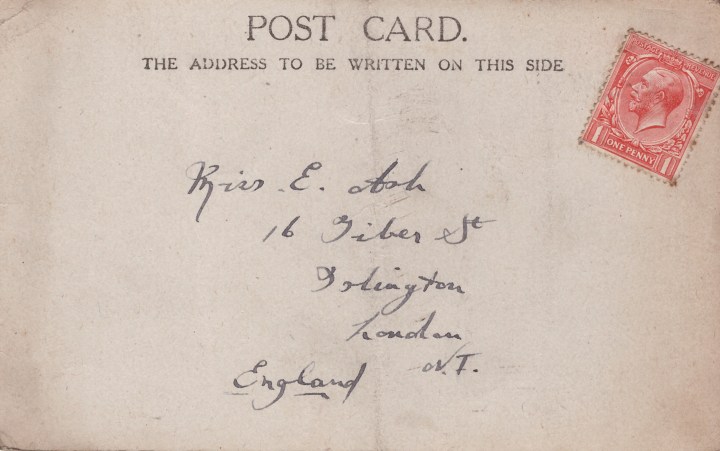 POST CARD.
THE ADDRESS TO BE WRITTEN ON THIS SIDE
1 ONE PENNY 1
Miss E. Ash
16 Tiber St
Islington
London
N.I.
England